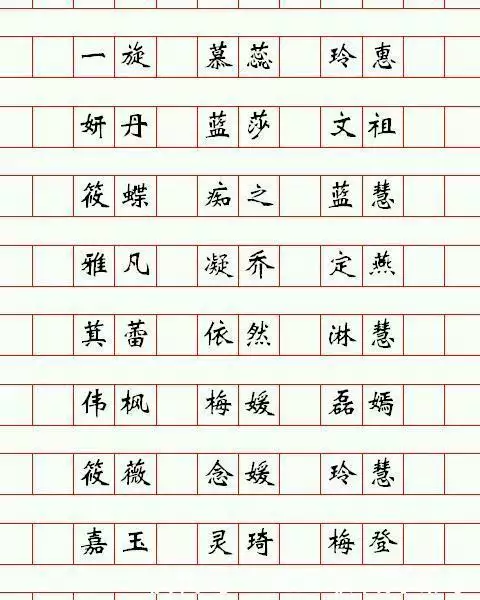 一旋 慕蕊 玲惠
妍丹 蓝莎 文祖
筱蝶 痴之 蓝慧
雅凡 凝乔 定燕
箕蕾 依然 淋慧
伟枫 梅媛 磊嫣
筱薇 念媛 玲慧
嘉玉 灵琦 梅登